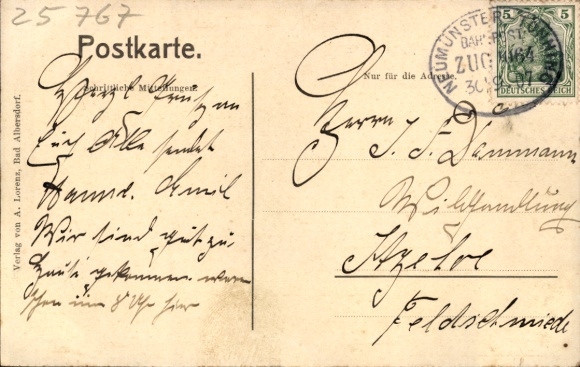 25767
Postkarte.
Schriftliche Mitteilungen.
Herzl.
Euch Alle sendet
Hanne. Emil
Wir sind gut zu
Hause gekommen. waren
schon um 8 Uhr hier
Verlag von A. Lorenz, Bad Albersdorf.
NEUMÜNSTER-TÖNNING
BAHNPOST
ZUG
07
5 5
DEUTSCHES REICH
Nur für die Adresse.
Herrn
J. F. Dammann
Wildhandlung
Itzehoe
Feldschmiede